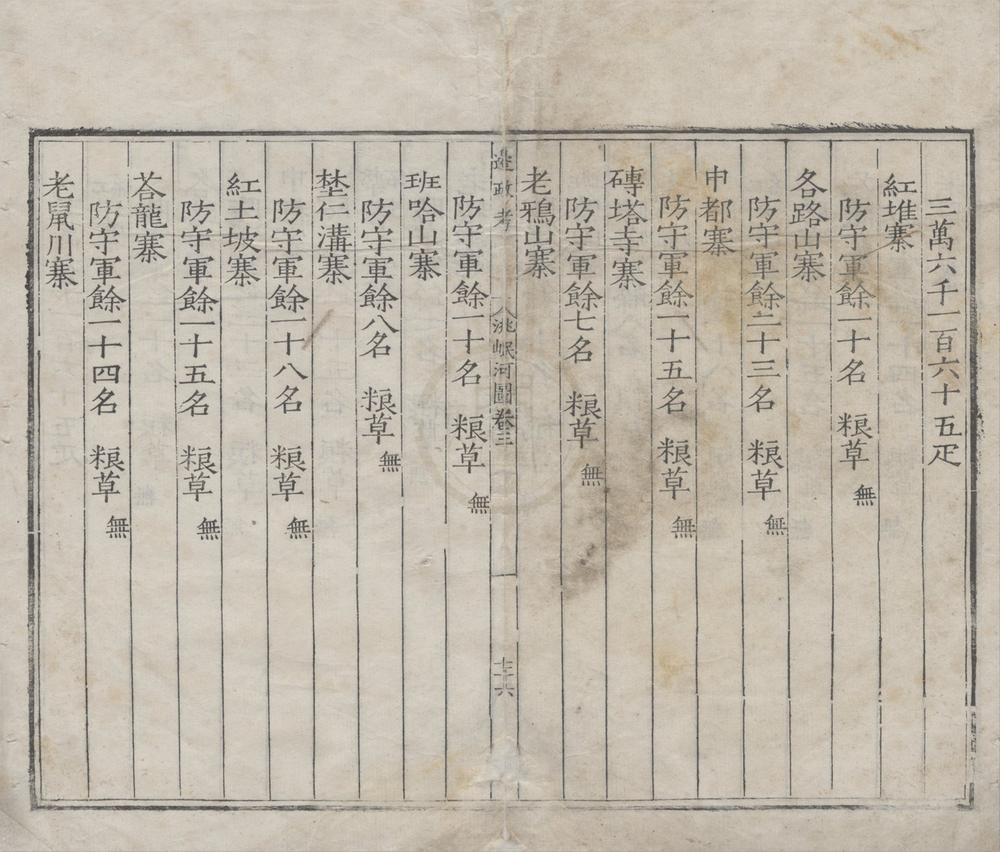 三萬六千一百六十五疋
紅堆寨
防守軍餘一十名　粮草無
各路山寨
防守軍餘二十三名　粮草無
申都寨
防守軍餘一十五名　粮草無
磚塔寺寨
防守軍餘七名　粮草無
老鴉山寨
邊政考　洮岷河圖卷三
防守軍餘一十名　粮草無
班哈山寨
防守軍餘八名　粮草無
埜仁溝寨
防守軍餘一十八名　粮草無
紅土坡寨
防守軍餘一十五名　粮草無
荅龍寨
防守軍餘一十四名　粮草無
老鼠川寨